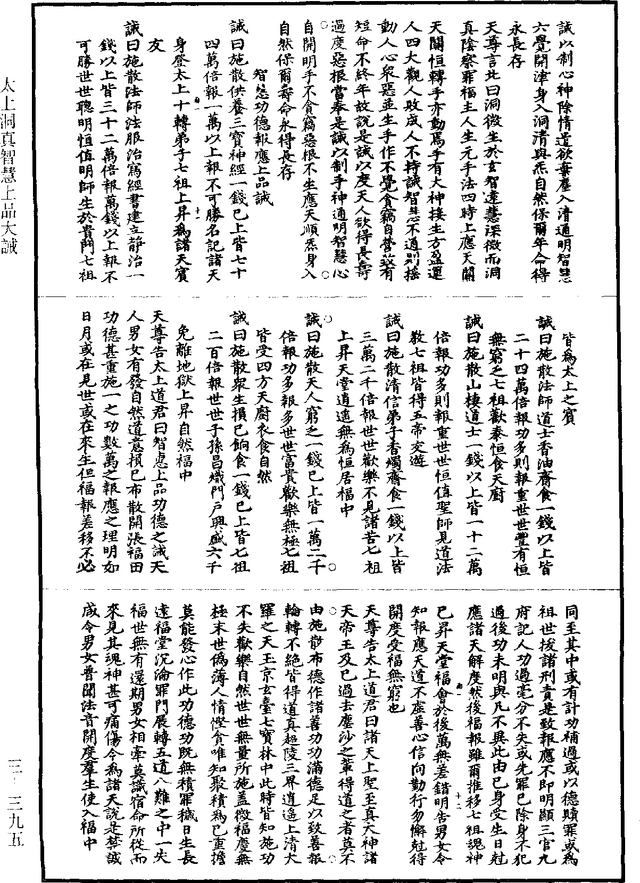 太上洞真智慧上品大誡
誡以制心神除情遣欲棄塵入清通明智慧
六覺開津身入洞清與炁自然保爾年命得
永長存
天尊言此曰洞微生於玄智達慧深微而洞
真陰察罪福主人生元手法四時上應天關
天關恒轉手亦動萬手有大神接生方盈運
人四大觀人敗成人不持誡智慧不通則搖
動人心衆惡並生手作不覺貪竊自營致有
短命不終年故說是誡以度天人欲得長壽
過度惡根當奉是誡以制手神通明智慧心
自開明手不貪竊惡根不生應天順炁身入
自然保爾壽命永得長存
智慧功德報應上品誡
誡曰施散供養三寶神經一錢已上皆七十
四萬倍報一萬以上報不可勝名記諸天
身登太上十轉弟子七祖上昇為諸天賓
友
誡曰施散法師法服治寫經書建立靜治一
錢以上皆三十二萬倍報萬錢以上報不
可勝世世聰明恒值明師生於貴門七祖
皆為太上之賓
誡曰施散法師道士香油齋食一錢以上皆
二十四萬倍報功多則報重世世豐有恒
無窮之七祖歡泰恒食天廚
誡曰施散山棲道士一錢以上皆一十二萬
倍報功多則報重世世恒值聖師見道法
教七祖皆得五帝交遊
誡曰施散清信弟子香燭齋食一錢以上皆
三萬二千倍報世世歡樂不見諸苦七祖
上昇天堂逍遙無為恒居福中
誡曰施散天人窮乏一錢已上皆一萬二千
倍報功多報多世世富貴歡樂無極七祖
皆受四方天廚衣食自然
誡曰施散衆生損己餉食一錢已上皆七祖
二百倍報世世子孫昌熾門戶興盛六千
免離地獄上昇自然福中
天尊告太上道君曰智慧上品功德之誡天
人男女有發自然道意損己布散開張福田
功德甚重施一之功數萬之報應之理明如
日月或在見世或在來生但福報差移不必
同至其中或有計功補過或以德贖罪或為
祖世拔諸刑責是致報應不即明顯三官九
府記人功過毫分不失或先罪已除身不犯
過後功未明與凡不異此由已身受生日尅
應諸天解度然後福報雖爾推移七祖魂神
已昇天堂福會於後萬無差錯明告男女令
知報應天道不虛善心信向勤行勿懈尅得
開度受福無窮也
天尊告太上道君曰諸天上聖至真大神諸
天帝王及已過去塵沙之輩得道之者莫不
由施散布德作諸善功功滿德足以致善報
輪轉不絕皆得道真超陵三界逍遙上清大
羅之天王京玄臺七寶林中此時皆知施功
不失歡樂自然世世無量所施蓋微福慶無
極末世偽薄人情慳貪唯知聚積為已重擔
莫能發心作此功德功既無積罪穢日生長
達福堂沉淪罪門展轉五道八難之中一失
福世無有還期男女相牽莫識宿命所從而
來見其魂神甚可痛傷今為諸天說是禁誡
咸令男女普聞法音開度羣生使入福中
三-三九五